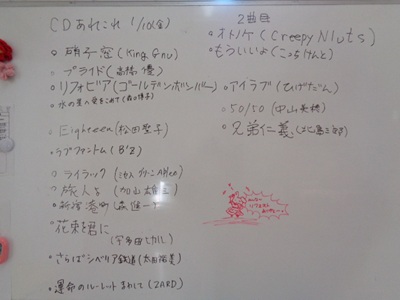 CDあれこれ 1/10(金)
。硝子窓(King Gnu)
。プライド(高橋優)
。リフォビア(ゴールデンボンバー)
。水の星へ愛をこめて(森口博子)
。Eighteen(松田聖子)
。ラブファントム(B'z)
。ライラック(ミセスグリーンApple)
。旅人よ(加山雄三)
。新宿・港町(森進一)
。花束を君に
(宇多田ヒカル)
。さらばシベリア鉄道(太田裕美)
。運命のルーレットまわして(ZARD)
2曲目
。オトノケ(Creepy Nuts)
。もういいよ(こっちのけんと)
。アイラブ(ひげだん)
。50/50(中山美穂)
。兄弟仁義(北島三郎)